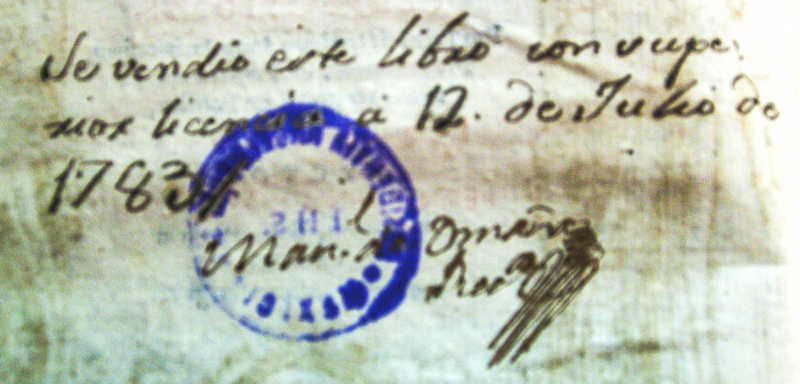 Se vendio este libro con supe
rior licencia a 12. de Julio de
1783
Man.l de Omaña